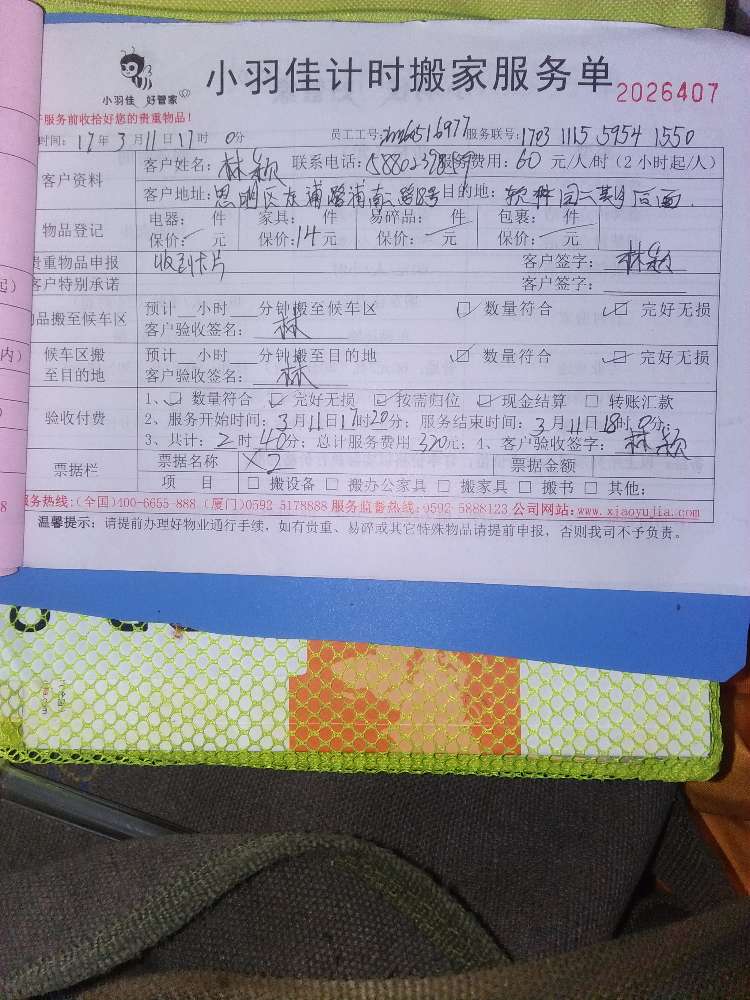 小羽佳 好管家
小羽佳计时搬家服务单
2026407
服务前收拾好您的贵重物品！
时间：17年3月11日17时0分 员工工号： 服务联号：1703 1115 5954 1550
客户资料
客户姓名：林颖 联系电话： 服务费用：60元/人/时（2小时起/人）
客户地址：思明区 目的地：软件园二期
物品登记
电器： 件 家具： 件 易碎品： 件 包裹： 件
保价： 元 保价：14元 保价： 元 保价： 元
贵重物品申报 收到卡片 客户签字：林颖
客户特别承诺 客户签字：
品搬至候车区
预计__小时___分钟搬至候车区 ☑ 数量符合 ☑ 完好无损
客户验收签名：林
候车区搬至目的地
预计__小时___分钟搬至目的地 ☑ 数量符合 ☑ 完好无损
客户验收签名：林
验收付费
1、☑ 数量符合 ☑ 完好无损 ☑ 按需归位 ☑ 现金结算 □ 转账汇款
2、服务开始时间：3月11日17时20分；服务结束时间：3月11日18时0分；
3、共计：2时40分；总计服务费用320元；4、客户验收签字：林颖
票据栏
票据名称 X2 票据金额
项 目 □ 搬设备 □ 搬办公家具 □ 搬家具 □ 搬书 □ 其他：
服务热线：（全国）400-6655-888 （厦门）0592 5178888 服务监督热线：0592-5888123 公司网站：www.xiaoyujia.com
温馨提示：请提前办理好物业通行手续，如有贵重、易碎或其它特殊物品请提前申报，否则我司不予负责。